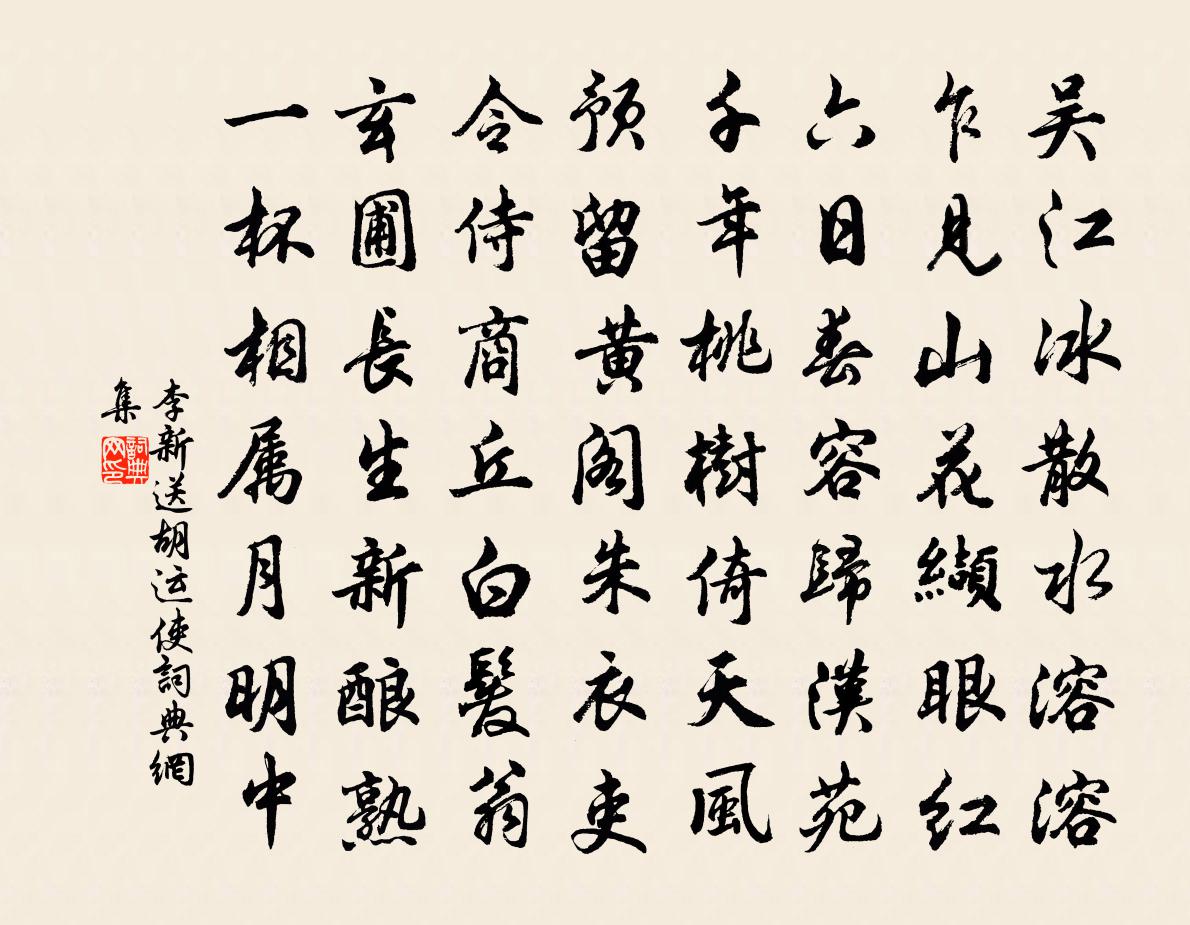 吴江冰散水溶溶
乍見山花纈眼紅
六日春容歸漢苑
千年桃樹倚天風
預留黄阁朱衣吏
令侍商丘白髮翁
玄圃長生新酿熟
一杯相属月明中
李新送胡运使詞典網
集
詞典
网印